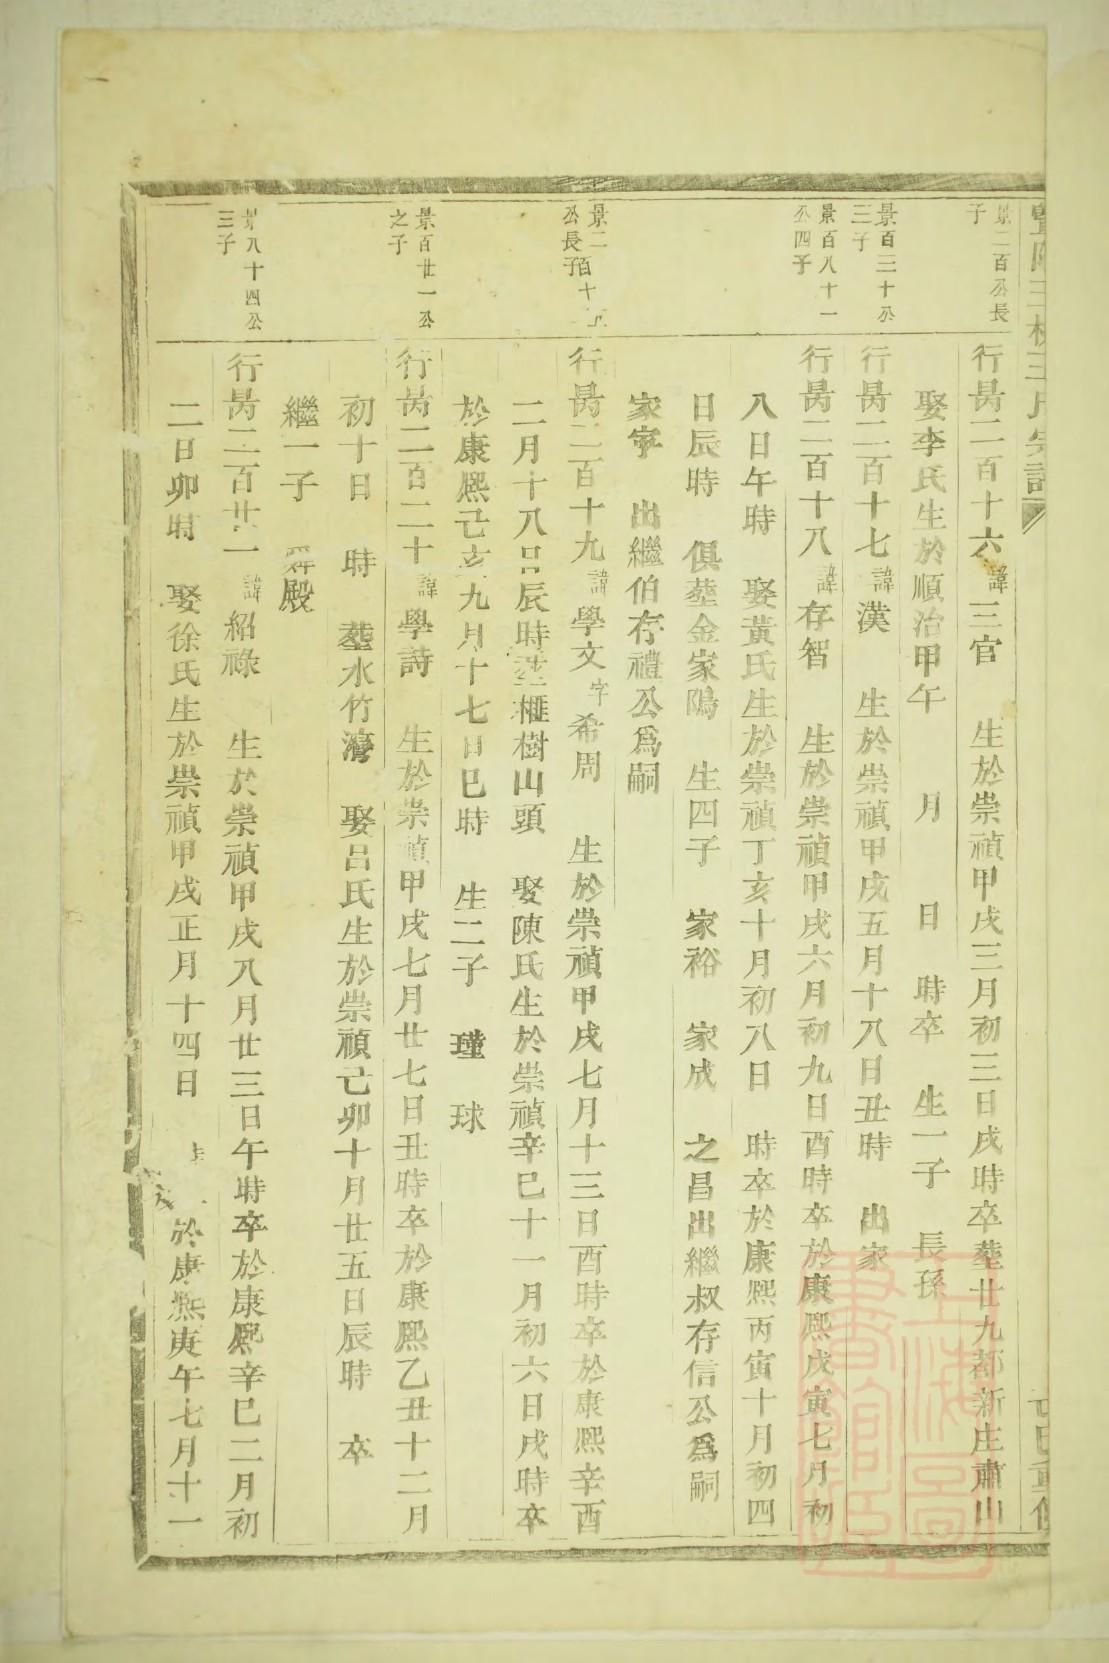 景二百公長
子
行昺二百十六諱三官　生於崇禎甲戌三月初三日戌時卒塟廿九都新庄肅山
娶李氏生於順治甲午　月　日　時卒　生一子　長孫
景百三十公
三子
行昺二百十七諱漢　生於崇禎甲戌五月十八日丑時　出家
景百八十一
公四子
行昺二百十八諱存智　生於崇禎甲戌六月初九日酉時卒於康熙戊寅七月初
八日午時　娶黃氏生於崇禎丁亥十月初八日　時卒於康熙丙寅十月初四
日辰時　俱塟金家隖　生四子　家裕　家成　之昌出繼叔存信公爲嗣
家寜　出繼伯存禮公爲嗣
景二百十五
公長子
行昺二百十九諱學文字希周　生於崇禎甲戌七月十三日酉時卒於康熙辛酉
二月十八日辰時塟榧樹山頭　娶陳氏生於崇禎辛巳十一月初六日戌時卒
於康熙己亥九月十七日巳時　生二子　瑾　球
景百廿一公
之子
行昺二百二十諱學詩　生於崇禎甲戌七月廿七日丑時卒於康熙乙丑十二月
初十日　時　塟水竹灣　娶呂氏生於崇禎己卯十月廿五日辰時　卒
繼一子　殿
景八十四公
三子
行昺二百廿一諱紹祿　生於崇禎甲戌八月廿三日午時卒於康熙辛巳二月初
二日卯時　娶徐氏生於崇禎甲戌正月十四日　於康熙庚午七月十一